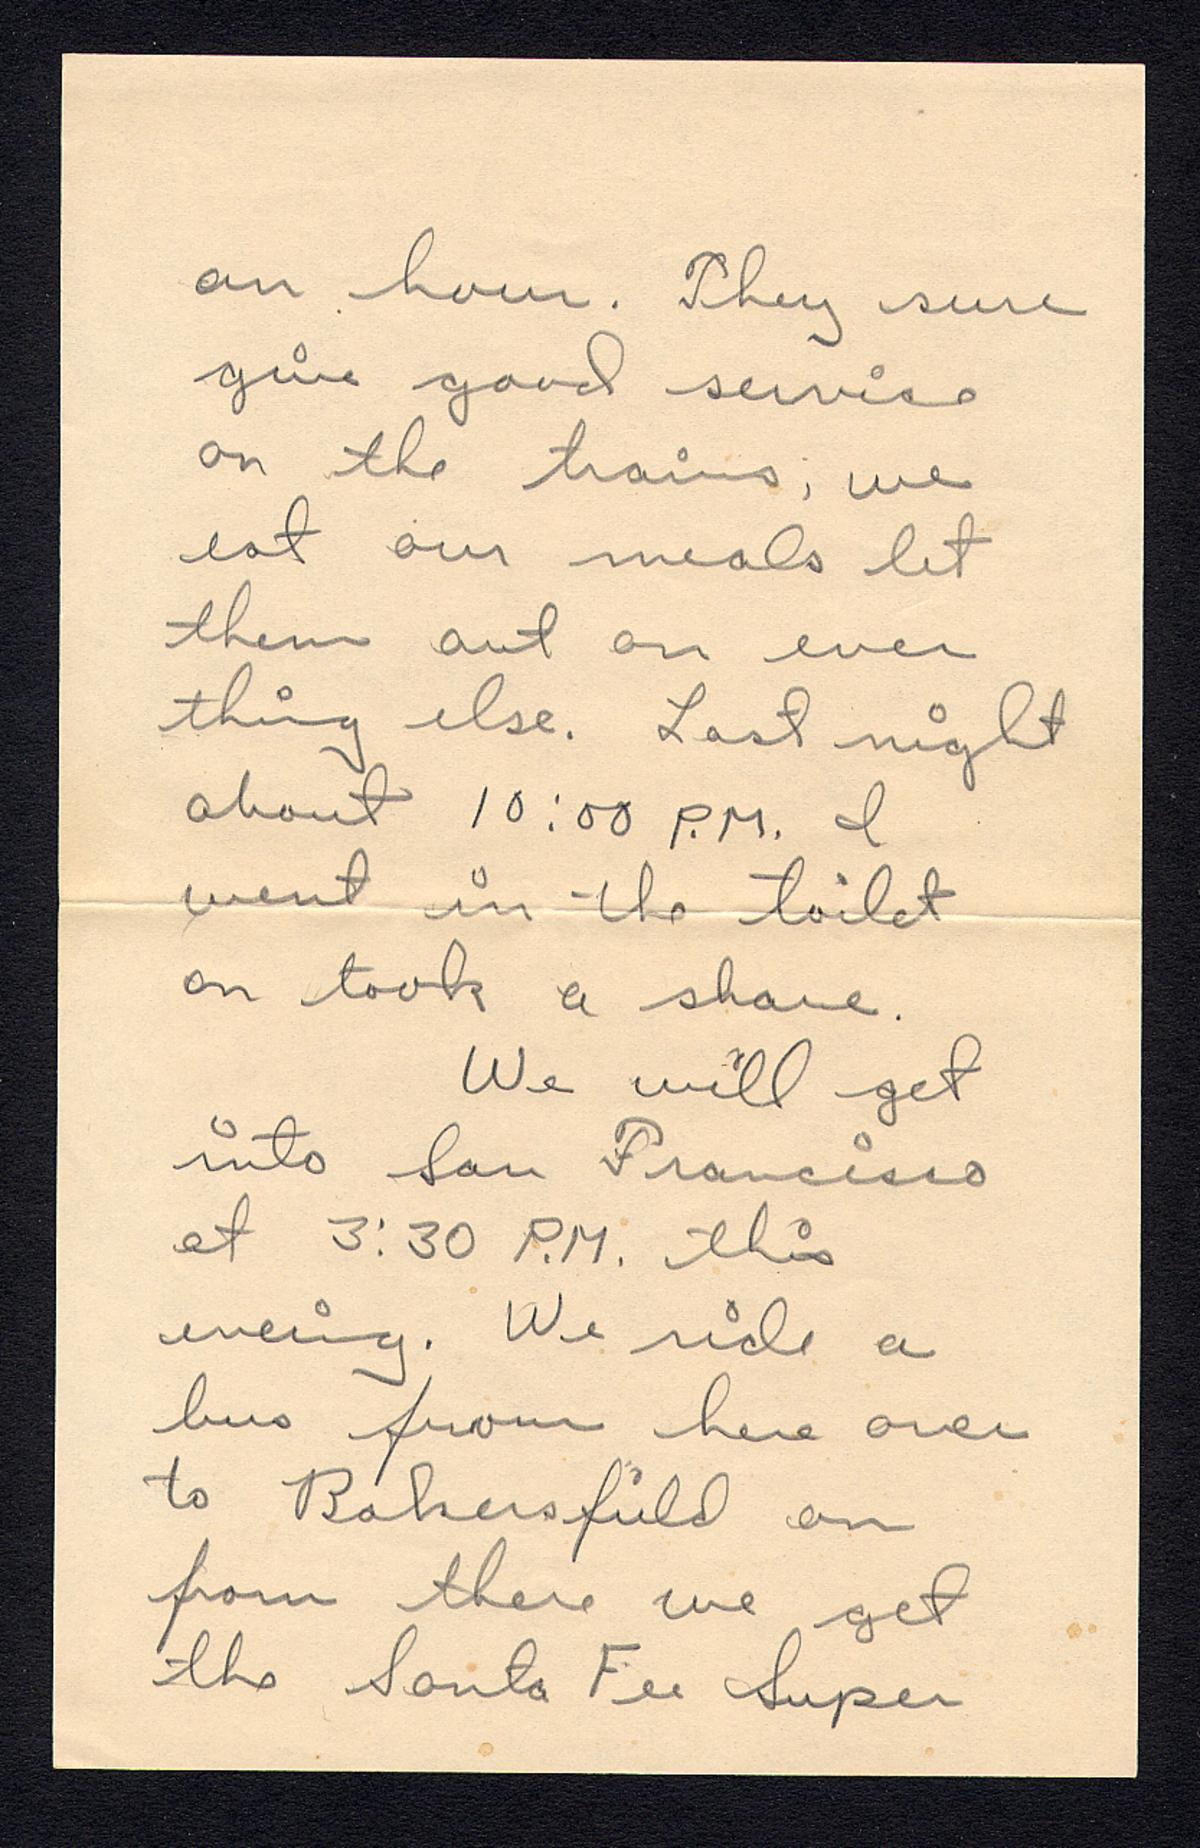 an hour. They sure
give good service
on the trains; we
eat our meals let
them out on ever
thing else. Last night
about 10:00 P.M. I
went in the toilet
on took a shave.
We will get
into San Francisco
at 3:30 P.M. this
eveing. We ride a
bus from here over
to Bakersfield on
from there we get
the Santa Fee Super